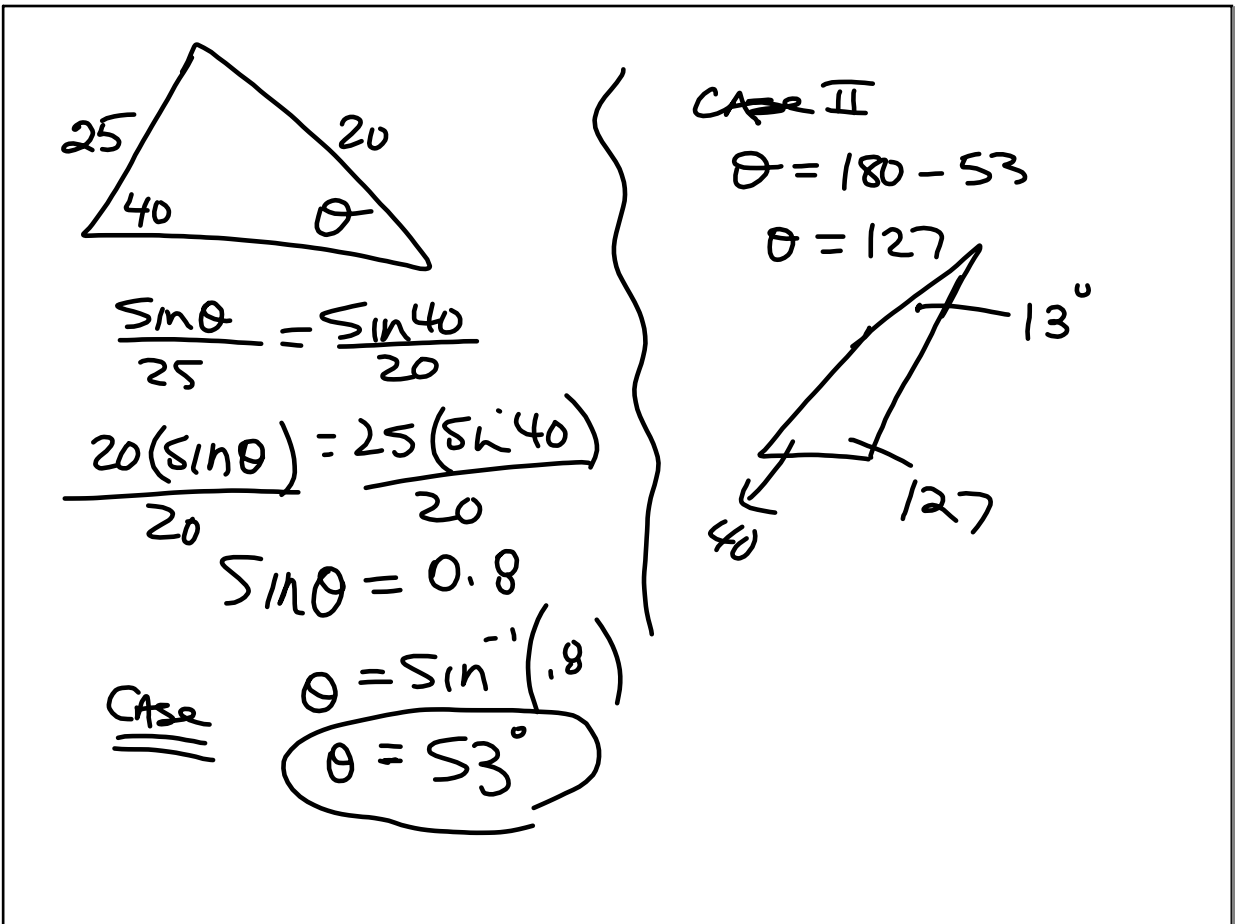 25
20
40
θ
sinθ/25 = sin40/20
20(sinθ)/20 = 25(sin40)/20
sinθ = 0.8
θ = sin⁻¹(.8)
CASe
θ = 53°
CASe II
θ = 180 - 53
θ = 127
13°
127
40